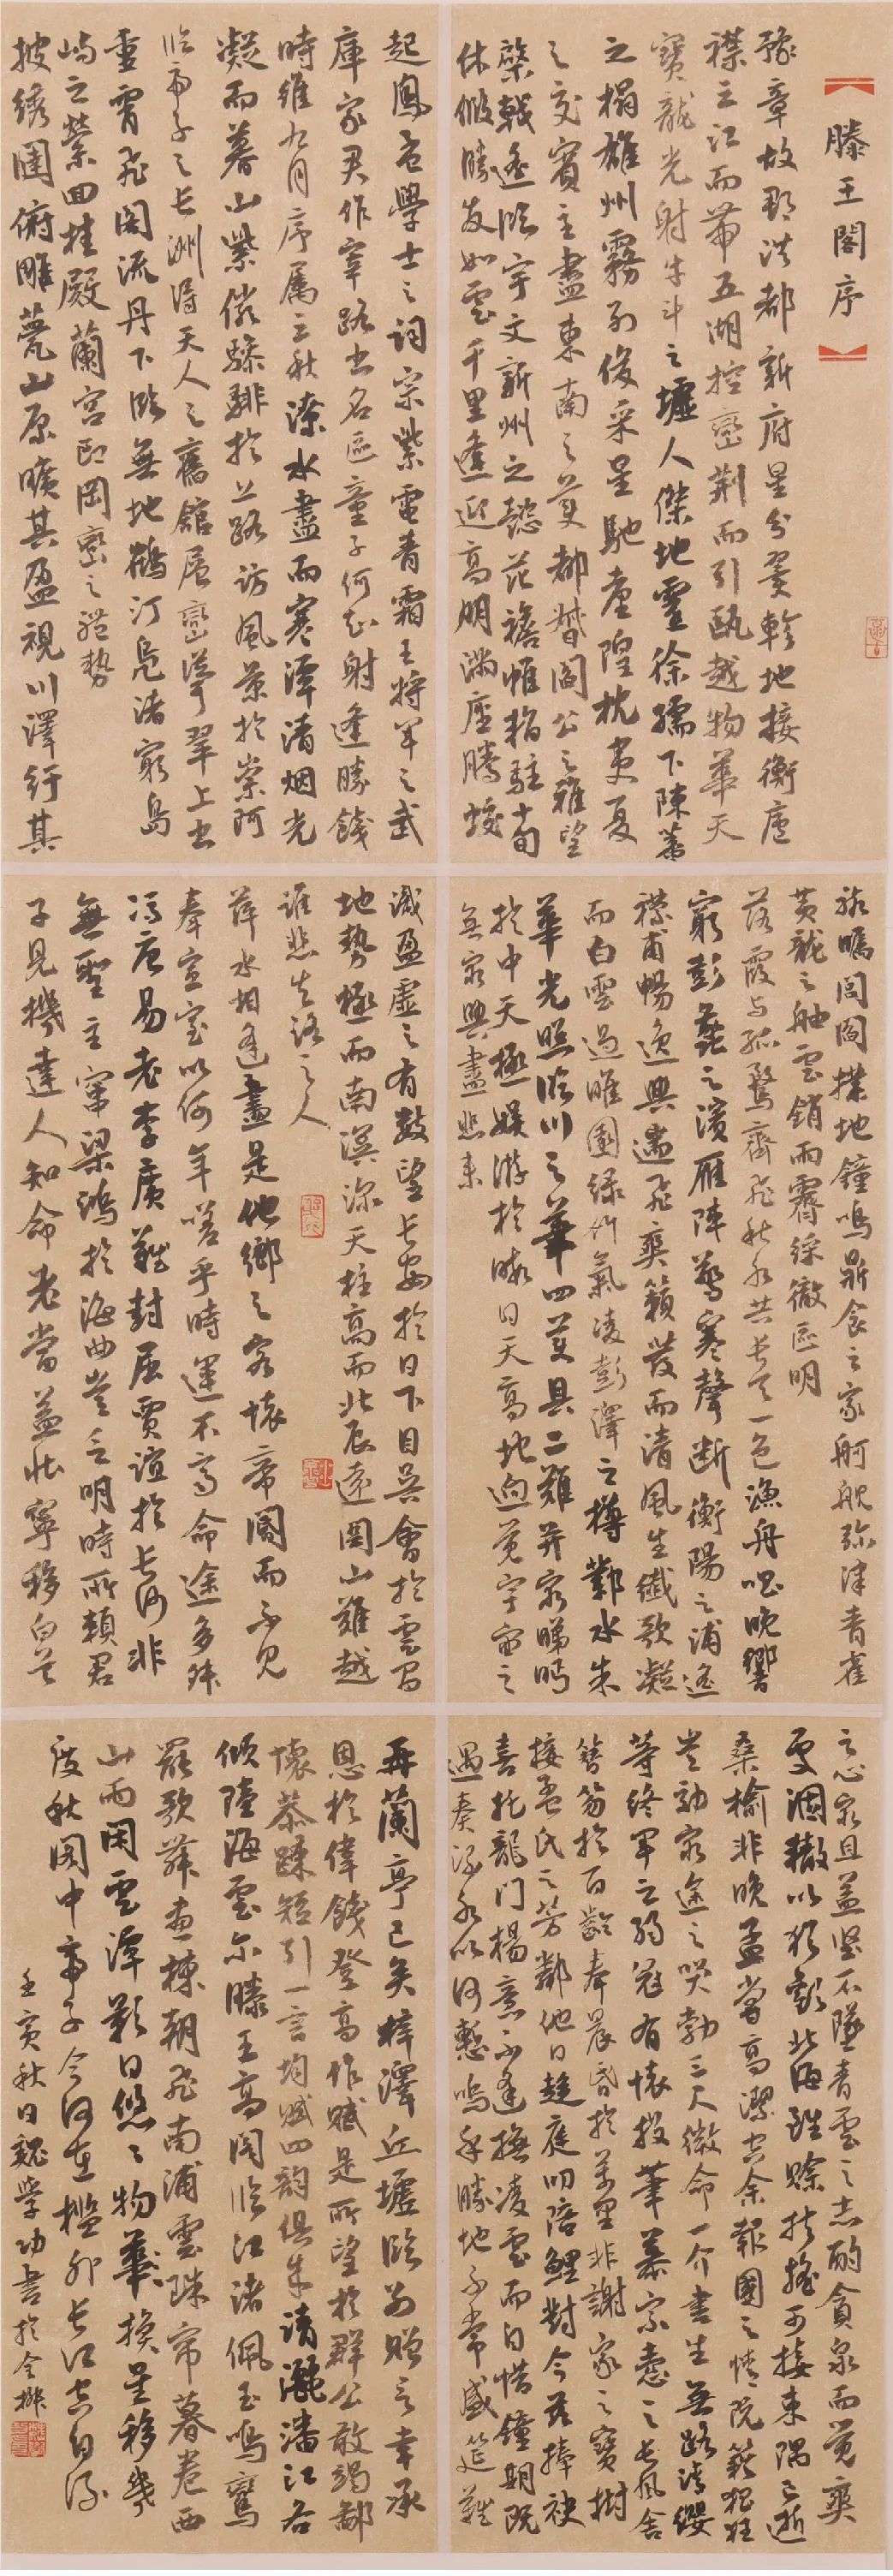 滕王閣序
豫章故郡洪都新府星分翼軫地接衡廬
襟三江而帶五湖控蠻荊而引甌越物華天
寶龍光射牛斗之墟人傑地靈徐孺下陳蕃
之榻雄州霧列俊采星馳臺隍枕夷夏
之交賓主盡東南之美都督閻公之雅望
棨戟遙臨宇文新州之懿范襜帷暫駐十旬
休假勝友如雲千里逢迎高朋滿座騰蛟
起鳳孟學士之詞宗紫電青霜王將軍之武
庫家君作宰路出名區童子何知躬逢勝餞
時維九月序屬三秋潦水盡而寒潭清烟光
凝而暮山紫儼驂騑於上路訪風景於崇阿
臨帝子之長洲得天人之舊館層巒聳翠上出
重霄飛閣流丹下臨無地鶴汀鳧渚窮島
嶼之縈回桂殿蘭宮即岡巒之體勢
披繡闥俯雕甍山原曠其盈視川澤紆其
駭矚閭閻撲地鐘鳴鼎食之家舸舰弥津青雀
黃龍之舳雲銷雨霽綵徹區明
落霞與孤鶩齊飛秋水共長天一色漁舟唱晚響
窮彭蠡之濱雁陣驚寒聲斷衡陽之浦遙
襟甫暢逸興遄飛爽籟發而清風生纖歌凝
而白雲遏睢園綠竹氣凌彭澤之樽鄴水朱
華光照臨川之筆四美具二難并窮睇眄
於中天極娛游於暇日天高地迥覺宇宙之
無窮興盡悲來
識盈虛之有數望長安於日下目吳會於雲間
地勢極而南溟深天柱高而北辰遠關山難越
誰悲失路之人
萍水相逢盡是他鄉之客懷帝閽而不見
奉宣室以何年嗟乎時運不齊命途多舛
馮唐易老李廣難封屈賈誼於長沙非
無聖主竄梁鴻於海曲豈乏明時所賴君
子見機達人知命老當益壯寧移白首
之心窮且益堅不墜青雲之志酌貪泉而覺爽
處涸轍以猶歡北海雖賒扶搖可接東隅已逝
桑榆非晚孟嘗高潔空余報國之情阮籍猖狂
豈效窮途之哭勃三尺微命一介書生無路請纓
等終軍之弱冠有懷投筆慕宗愨之長風舍
簪笏於百齡奉晨昏於萬里非謝家之寶樹
接孟氏之芳鄰他日趨庭叨陪鯉對今茲捧袂
喜托龍門楊意不逢撫凌雲而自惜鐘期既
遇奏流水以何慙嗚呼勝地不常盛筵難
再蘭亭已矣梓澤丘墟臨別贈言幸承
恩於偉餞登高作賦是所望於群公敢竭鄙
懷恭疎短引一言均賦四韵俱成請灑潘江各
傾陸海雲尔滕王高閣臨江渚佩玉鳴鸞
罷歌舞畫棟朝飛南浦雲珠帘暮卷西
山雨閑雲潭影日悠々物華換星移幾
度秋閣中帝子今何在檻外長江空自流
壬寅秋日魏學功書於金